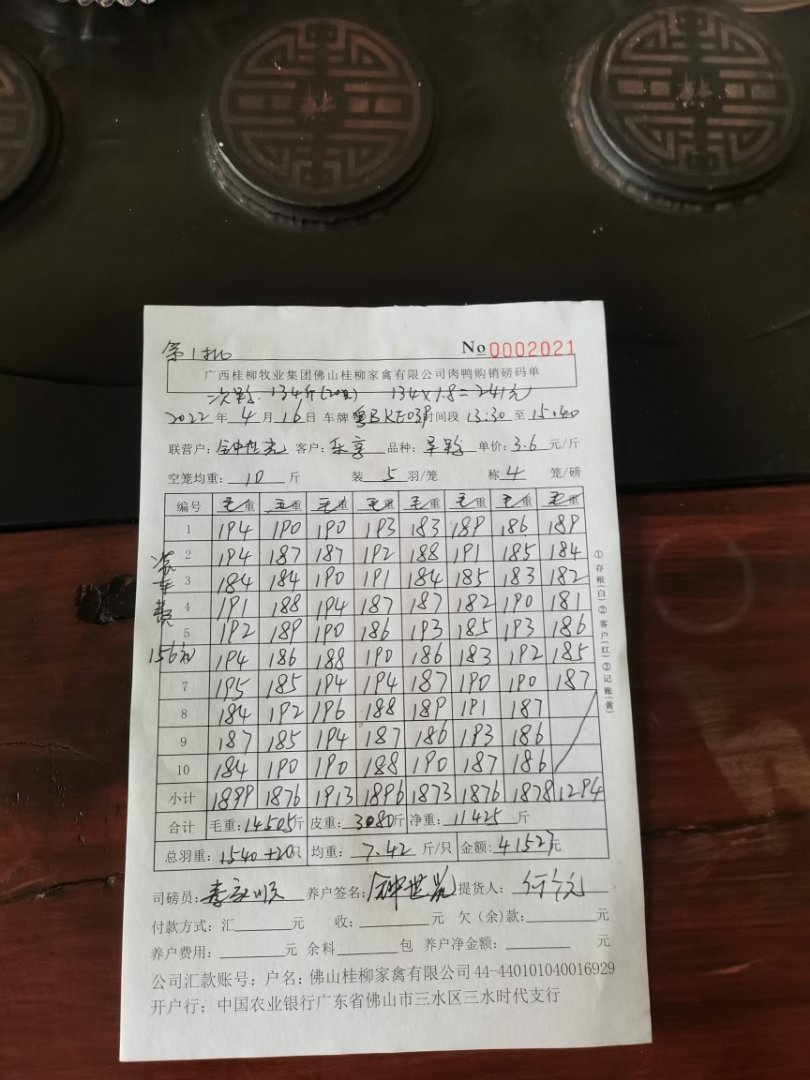 第1批 No 0002021
广西桂柳牧业集团佛山桂柳家禽有限公司肉鸭购销磅码单
次鸭 134斤(20只) 134×1.8=241元
2022年4月16日 车牌 粤BKE03P 时间段 13:30至15:40
联营户: 客户:乐享 品种: 单价:3.6元/斤
空笼均重:10斤 装5羽/笼 称4笼/磅
编号 毛重 毛重 毛重 毛重 毛重 毛重 毛重 毛重
1 194 190 190 193 183 189 186 189
2 194 187 187 192 188 191 185 184
3 184 184 190 191 184 185 183 182
4 191 188 194 187 187 182 190 181
5 192 189 190 186 193 185 193 186
194 186 188 190 186 183 192 185
7 195 185 194 194 187 190 190 187
8 184 192 196 188 189 191 187
9 187 185 194 187 186 193 186
10 184 190 190 188 190 187 186
小计 1899 1876 1913 1896 1873 1876 1878 1294
合计 毛重:14505斤 皮重:3080斤 净重:11425斤
总羽重:1540+20只 均重:7.42斤/只 金额:41527元
司磅员: 养户签名:钟世 提货人:
付款方式:汇 元 收: 元 欠(余)款: 元
养户费用: 元 余料 包 养户净金额: 元
公司汇款账号:户名:佛山桂柳家禽有限公司44-440101040016929
开户行:中国农业银行广东省佛山市三水区三水时代支行
车费
156元
①存根(白)②客户(红)③记账(黄)